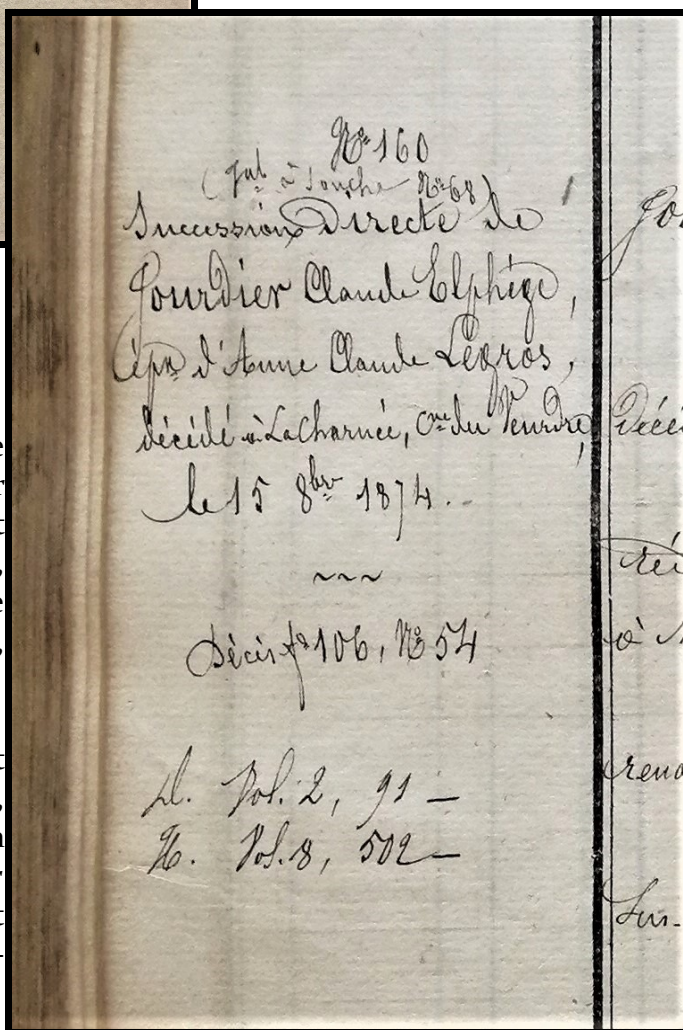 N° 160
à Souche N° 68)
Succession Directe de
Jourdier Claude Elphège,
ép. d'Anne Claude Legros,
décédé à La Charnée, Cne du Veurdre,
le 15 8bre 1874.
~~~
Décès f° 106, N° 54
D. Vol. 2, 91 —
H. Vol. 8, 502 —